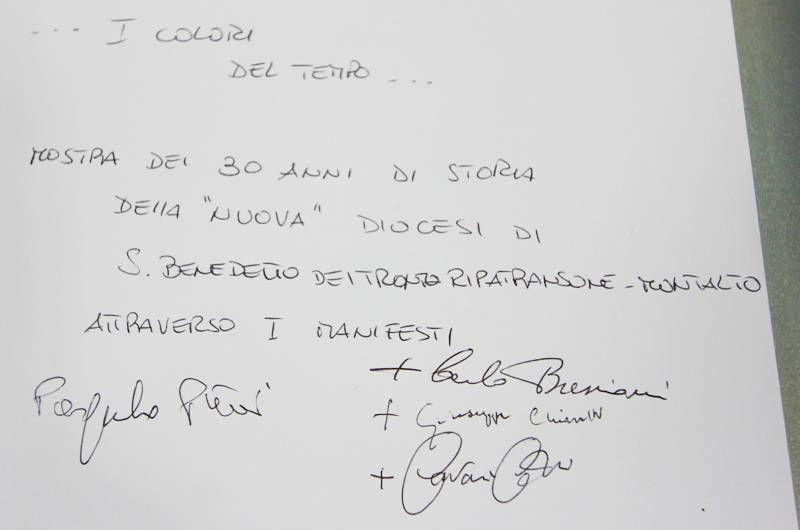 ... I COLORI
DEL TEMPO ...
MOSTRA DEI 30 ANNI DI STORIA
DELLA "NUOVA" DIOCESI DI
S. BENEDETTO DEL TRONTO RIPATRANSONE - MONTALTO
ATTRAVERSO I MANIFESTI
+ Carlo Bresciani
+ Giuseppe
+